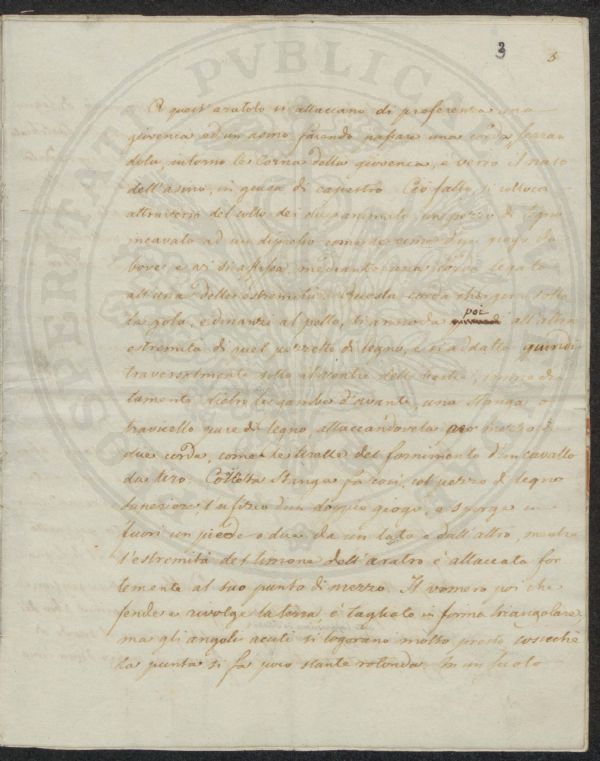 3 5
A quest'aratolo si attaccano di preferenza una
giovenca ed un asino facendo passare una corda, legan
dola, intorno le Corna della giovenca, e verso il naso
dell'asino, in guisa di capestro. Ciò fatto, si colloca
attraverso del collo dei due animali, un pezzo di legno
incavato ad un dipresso come di un giogo da
bove; e vi si affissa, mediante una corda legata
all'una delle estremità. Questa corda che gira sotto
la gola, e dinanzi al petto, si annoda poi all'altra
estremità di quel pezzetto di legno, e si adatta quindi
traversalmente sotto al ventre delle bestie, immedia
tamente dietro le gambe d'avante una stanga o
travicello pure di legno, attaccandovela per mezzo di
due corde, come le tiratte del fornimento d'un cavallo
da tiro. Cotesta Stanga fa così, col pezzo di legno
superiore l'uffizio d'un doppio giogo, e sporge in
fuori un piede o due da un lato e dall'altro, mentre
l'estremità del timone dell'aratro è attaccata for
temente al suo punto di mezzo. Il vomero poi che
fende e rivolge la terra, è tagliato in forma triangolare,
ma gli angoli acuti si logorano molto presto, cosicchè
la punta si fa poco stante rotonda. In un suolo
PROSPERITATI PVBLICAE